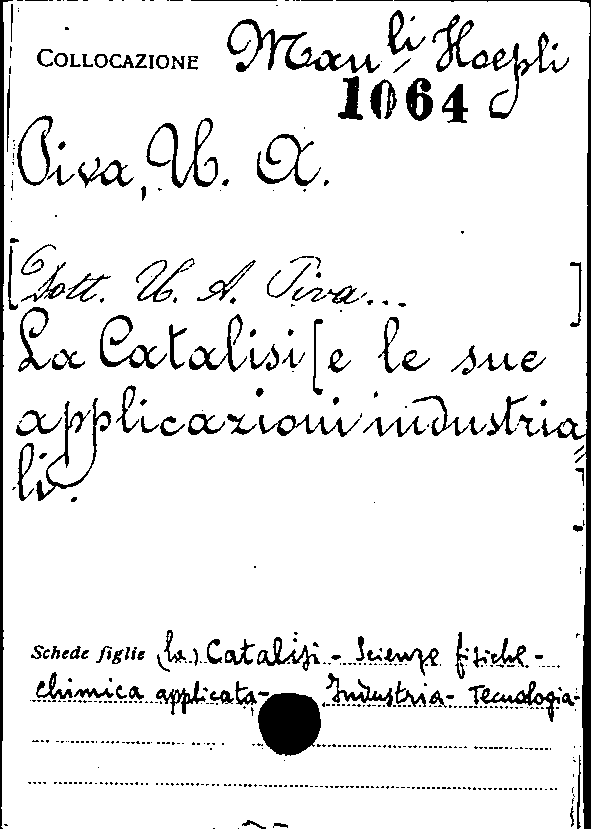 COLLOCAZIONE Man.li Hoepli
1064
Piva, U. A.
[Dott. U. A. Piva...]
La Catalisi [e le sue
applicazioni industria
li.
Schede figlie (la) Catalisi - Scienze fisiche -
chimica applicata - Industria - Tecnologia -